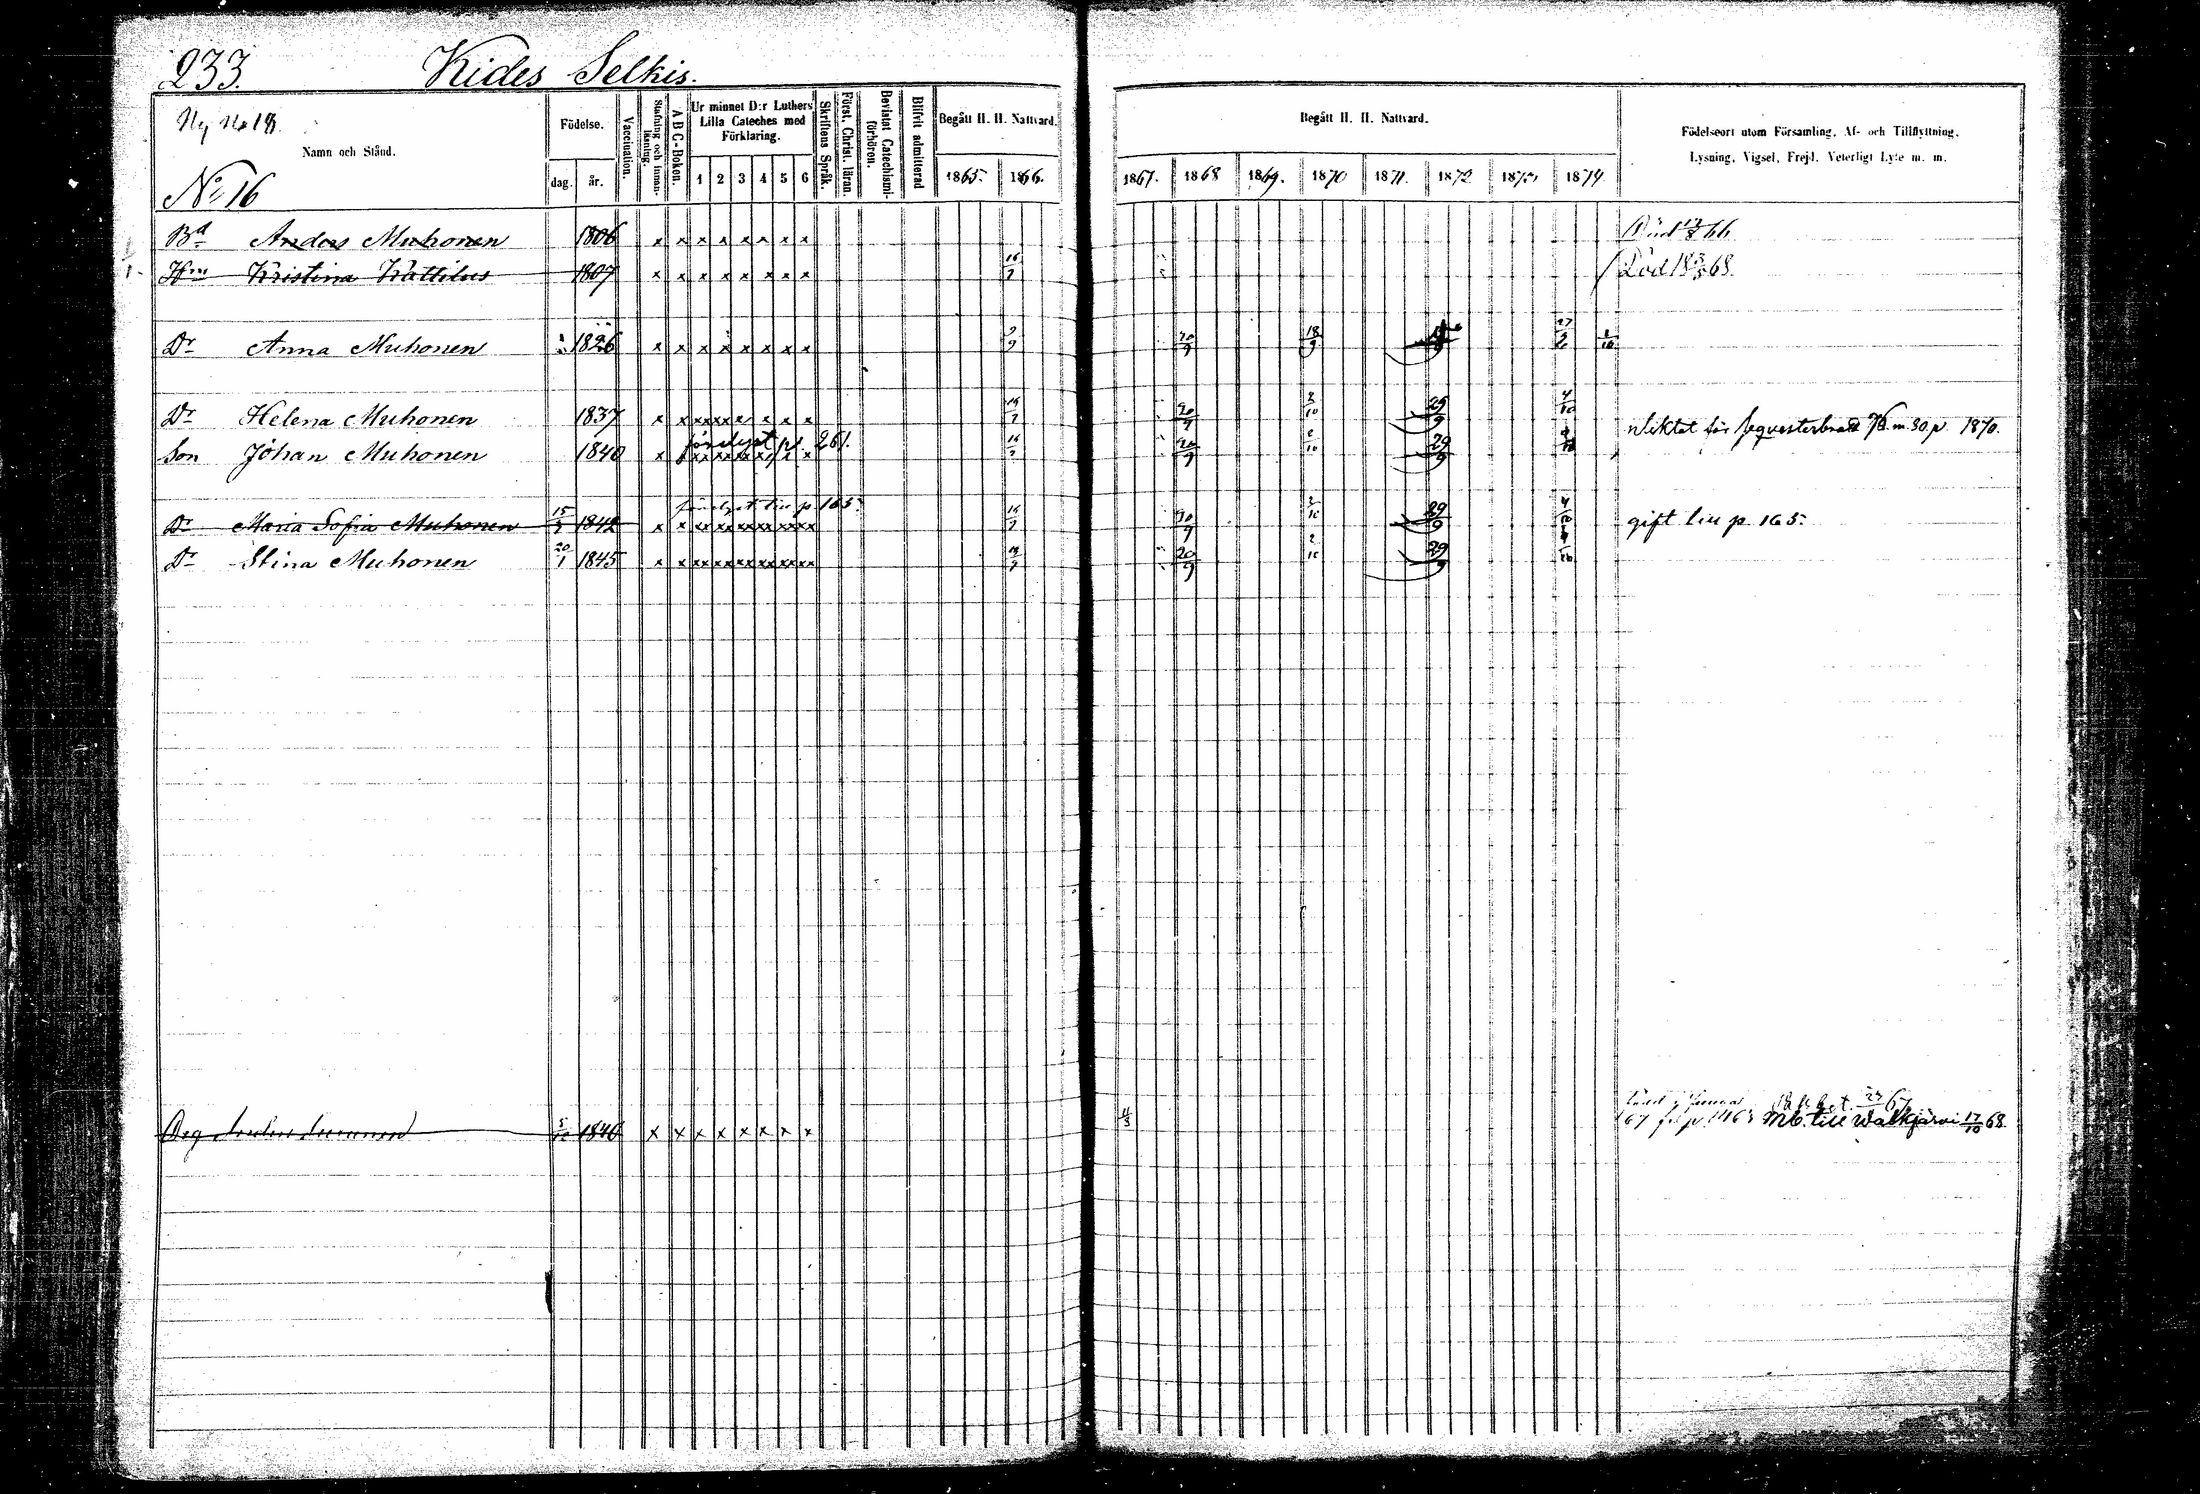 233. Kides Selkis.
Ny No 18.
Namn och Stånd.
No 16
Födelse.
dag. år.
Vaccination.
Stafning och innanläsning.
A B C-Boken.
Ur minnet D:r Luthers Lilla Cateches med Förklaring.
1 2 3 4 5 6
Skriftens Språk.
Först. Christ. läran.
Bevistat Catechismiförhören.
Blifvit admitterad
Begått H. H. Nattvard.
1865. 1866.
Begått H. H. Nattvard.
1867. 1868 1869. 1870 1871. 1872 1873 1874.
Födelseort utom Församling, Af- och Tillflyttning, Lysning, Vigsel, Frejd, Veterligt Lyte m. m.
Bd Anders Muhonen 1806 x x x x x x x x Död 66
Hu Kristina Rättilus 1807 x x x x x x x x 16/7 Död 18 3/5 68.
Dr Anna Muhonen 1826 x x x x x x x x 20/9 18/9
Dr Helena Muhonen 1837 x x xx xx x x x x 20/9 2/10 29/9 4/10 pliktat för m. 80 p. 1870.
förelyst pl. 261.
Son Johan Muhonen 1840 x 16/7 20/9 2/10 29/9
förelyst till p 165.
Dr Maria Sofia Muhonen 15/3 1842 x x xx xx xx xx xx xx 16/7 20/9 2/10 29/9 gift till p. 165.
Dr Stina Muhonen 20/1 1845 x x xx xx xx xx xx xx 20/9 2/10 29/9
67
Drg 1840 x x x x x x x x 67 Mb. till Walkjärvi 17/10 68.